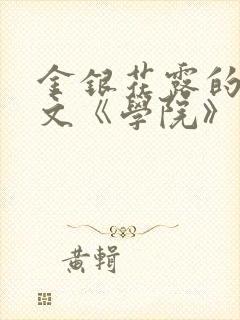 金銀花露的
文《學院》
黃輯